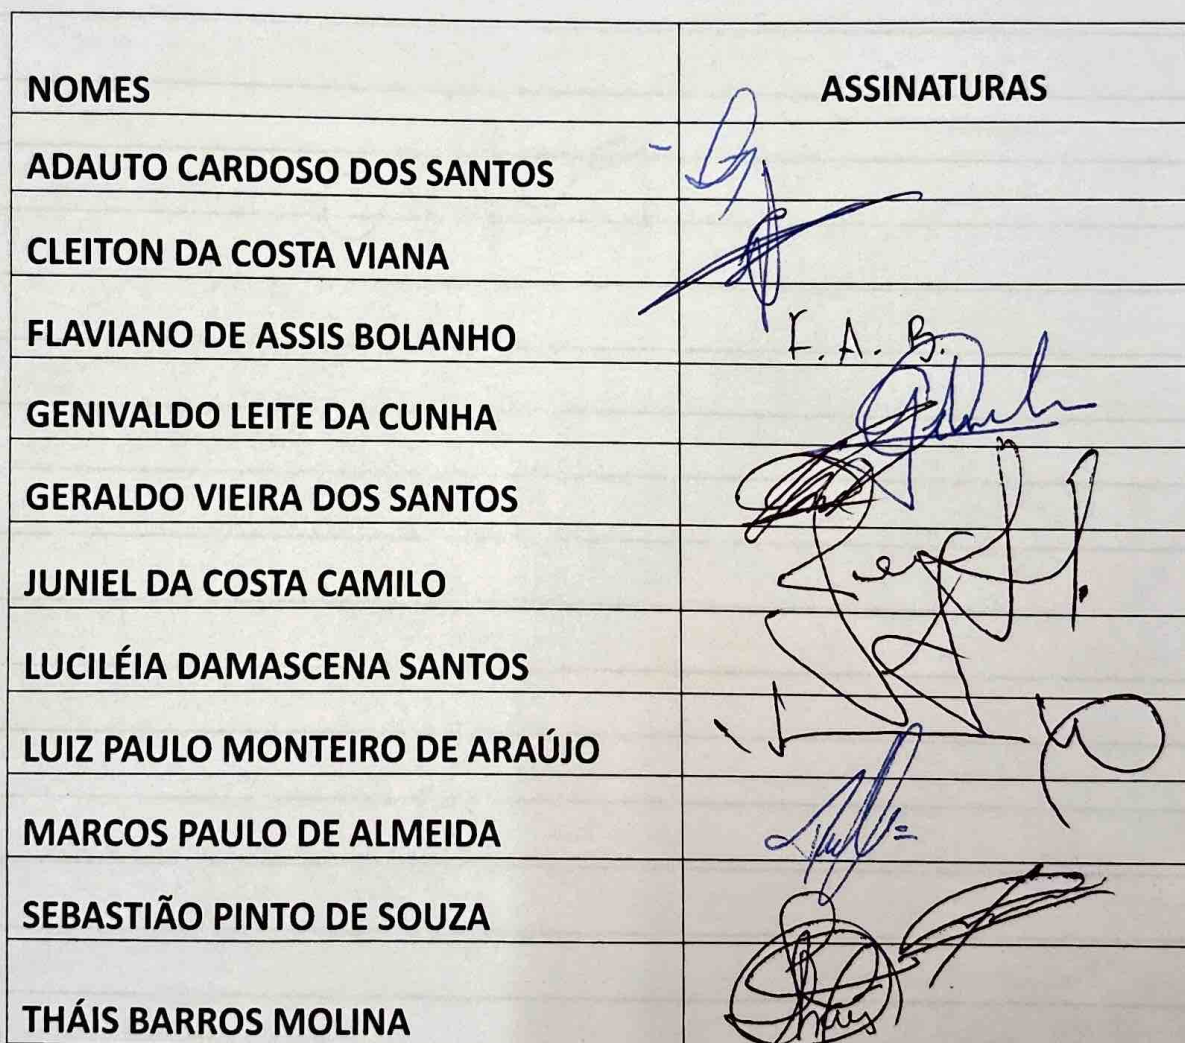 NOMES ASSINATURAS
ADAUTO CARDOSO DOS SANTOS
CLEITON DA COSTA VIANA
FLAVIANO DE ASSIS BOLANHO F. A. B.
GENIVALDO LEITE DA CUNHA
GERALDO VIEIRA DOS SANTOS
JUNIEL DA COSTA CAMILO
LUCILÉIA DAMASCENA SANTOS
LUIZ PAULO MONTEIRO DE ARAÚJO
MARCOS PAULO DE ALMEIDA
SEBASTIÃO PINTO DE SOUZA
THÁIS BARROS MOLINA